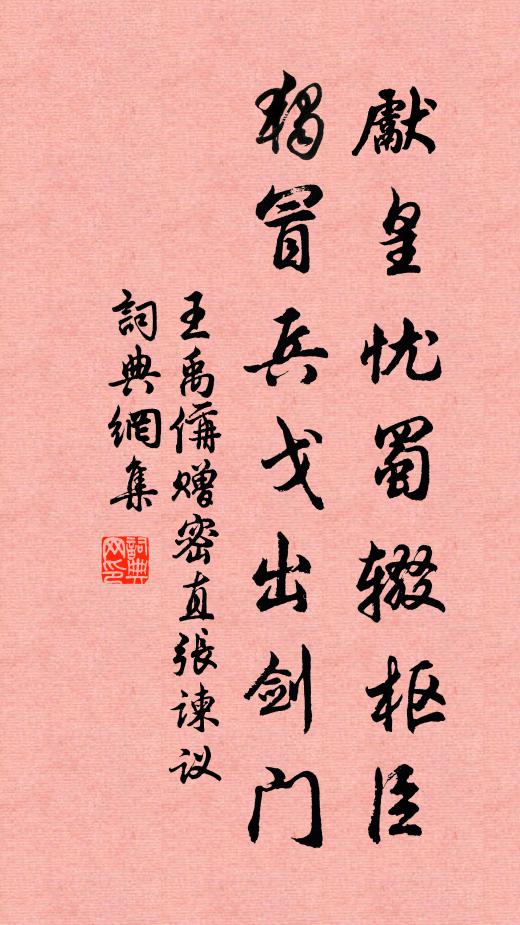 獻皇忧蜀辍枢臣
独冒兵戈出剑门
王禹偁赠密直張谏议
詞典網集
詞典網印